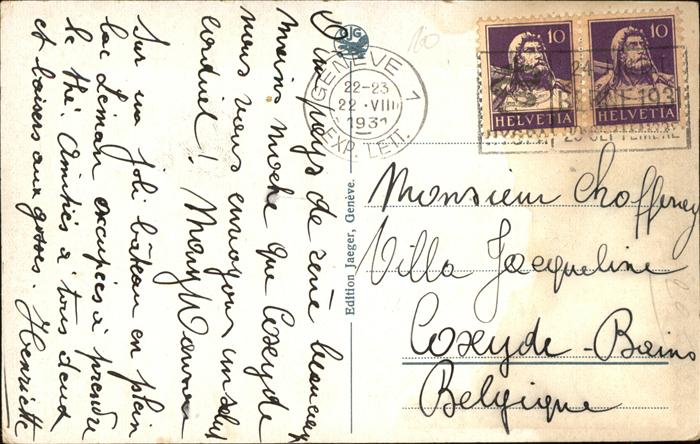 D'un pays de rêve beaucoup
moins moche que Coxyde
nous vous envoyons un salut
cordial !
Sur un joli bateau en plein
lac Léman occupées à prendre
le thé. Amitiés à tous deux
et baisers aux gosses. Henriette
JG
Edition Jaeger, Genève.
GENÈVE 1
22-23
22.VIII
1931
EXP. LETT.
10
HELVETIA
10
HELVETIA
Monsieur Choffray
Villa Jacqueline
Coxyde-Bains
Belgique